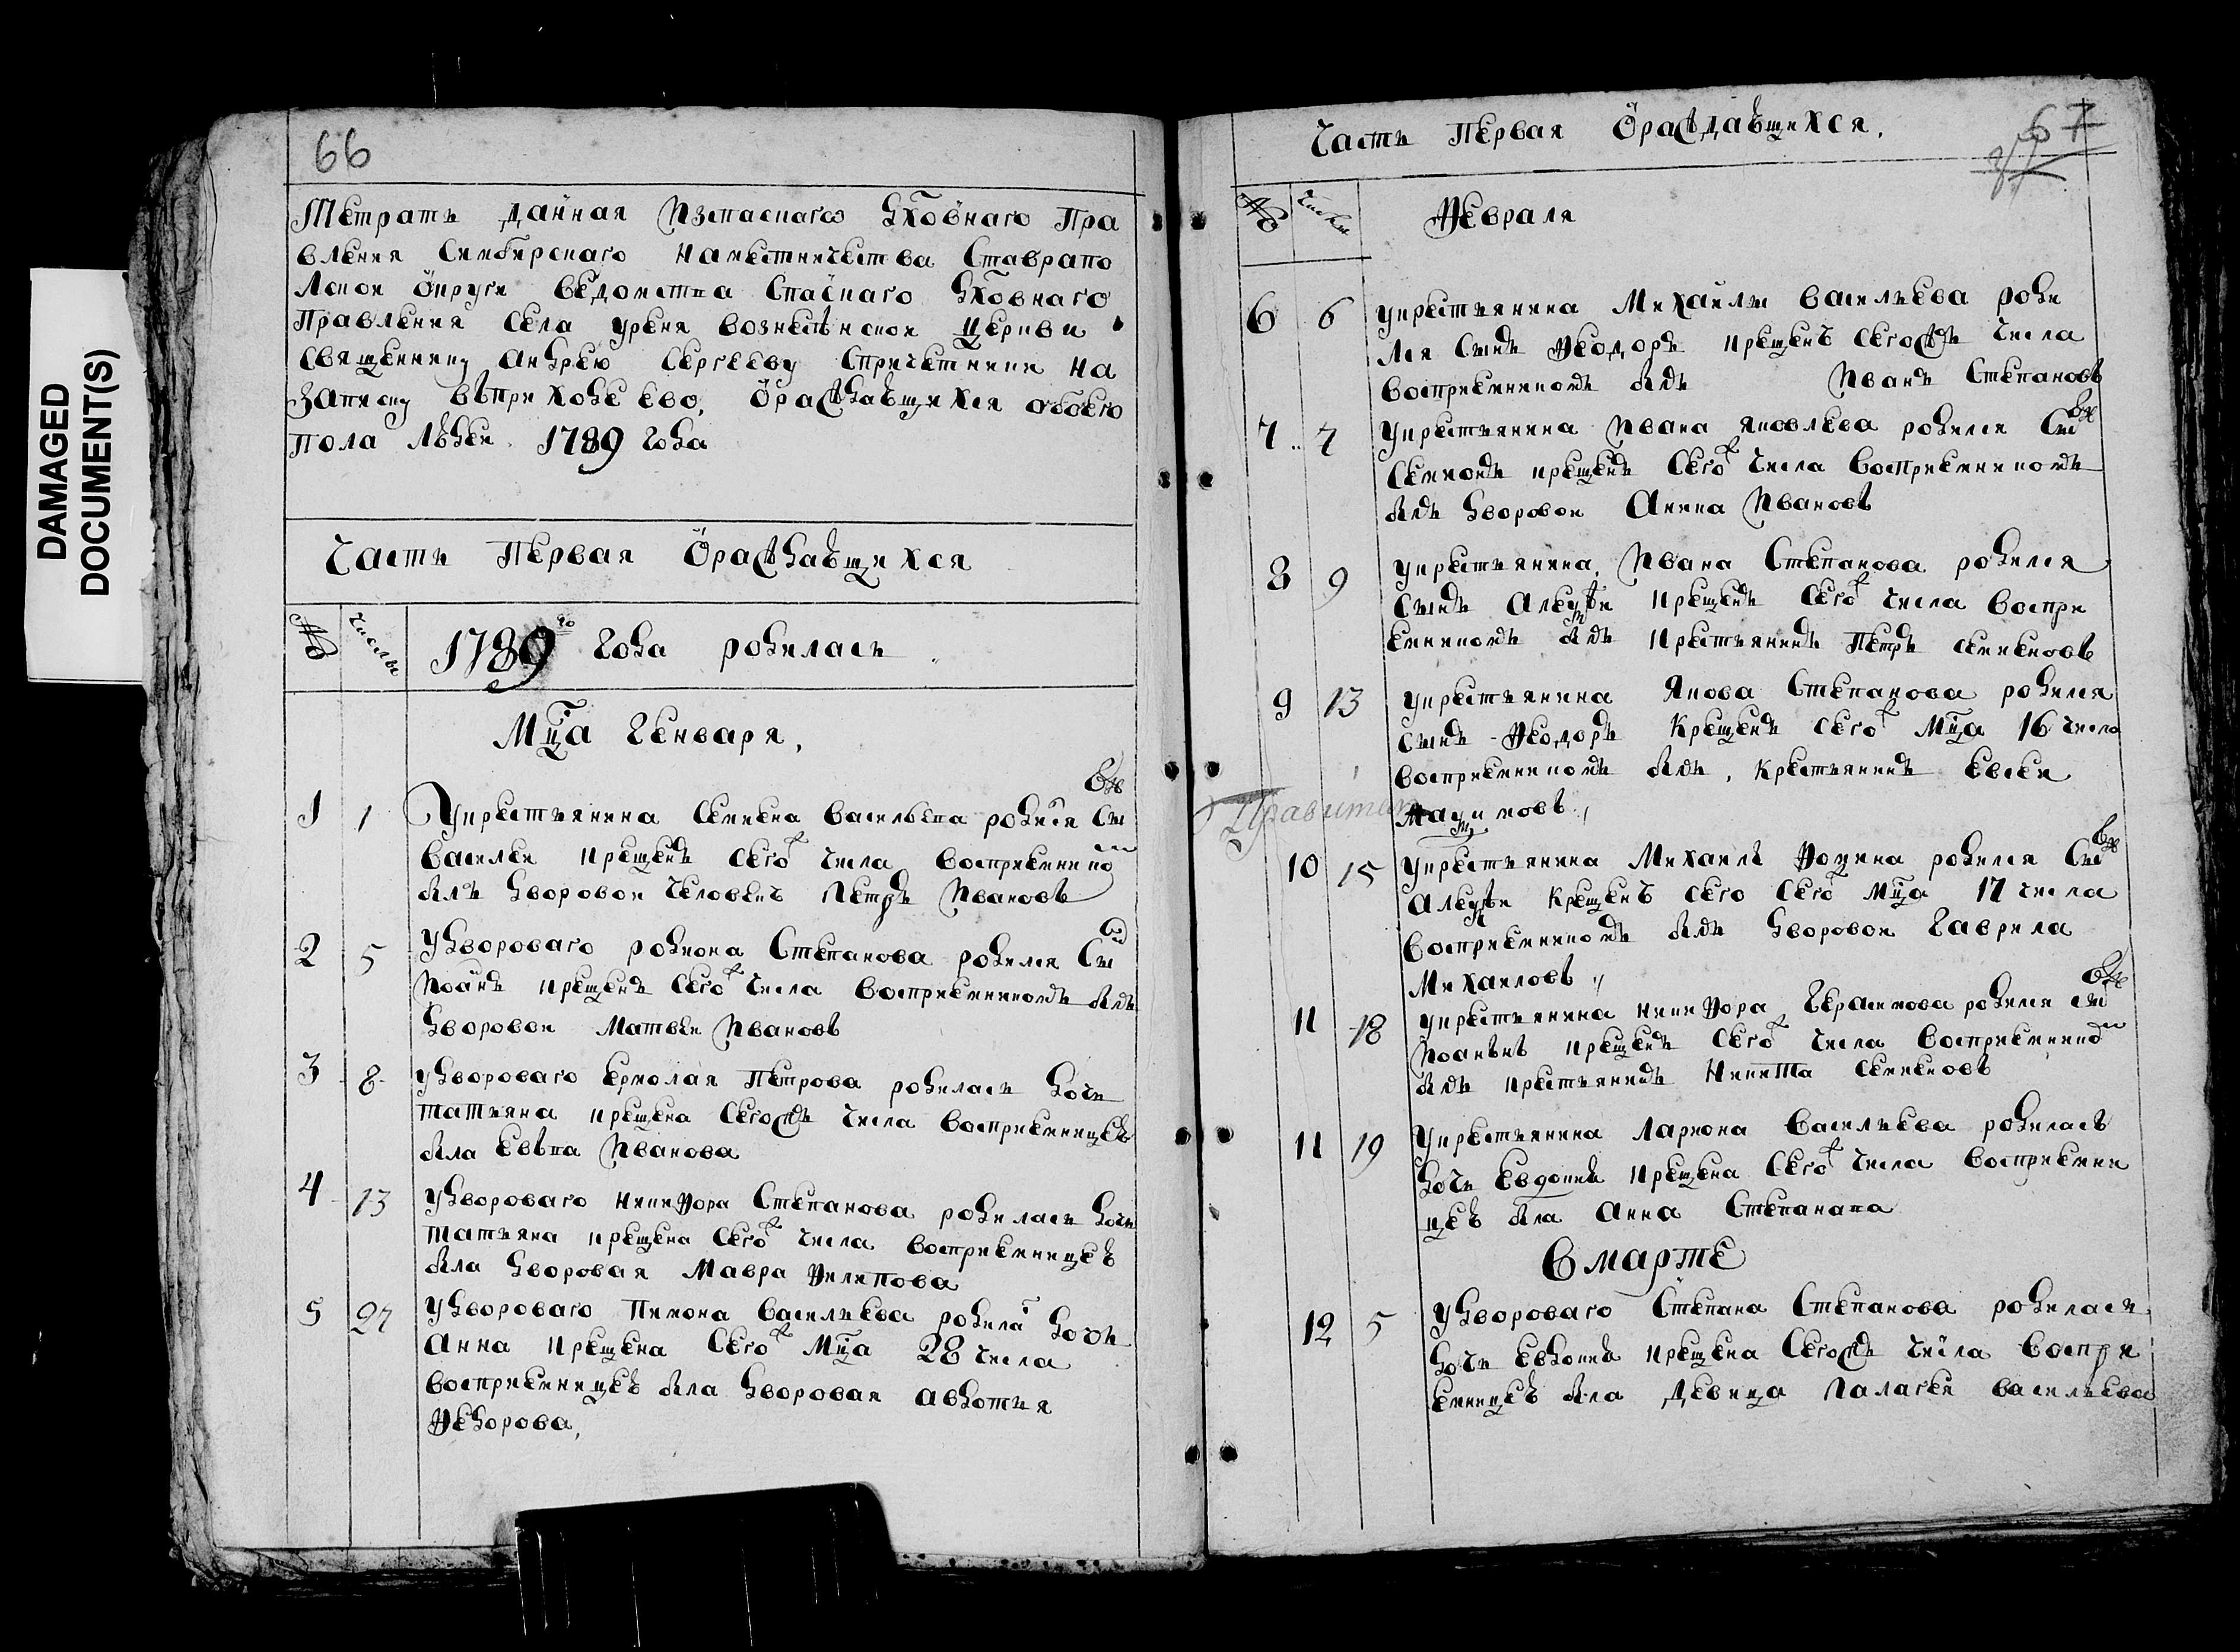 DAMAGED
DOCUMENT(S)
66
Тетрать данная изспаскаго духовнаго пра
вления Симбирскаго наместничества Ставрапо
лской округи ведомства Спаскаго духовнаго
правления села Уреня вознесенской церкви
священнику Андрею Сергееву спричетники на
записку вприходе ево, ораждающихся обоего
пола людей 1789 года
Часть Первая Ораждающихся
№ Числы 1789го года родилась
Мца Генваря,
1 1 Укрестьянина Семиона Васильева родился сынъ
Василей крещенъ сегож числа восприемником
былъ дворовой человекъ Петръ Ивановъ
2 5 Удвороваго Родиона Степанова родился сынъ
Иоанъ крещенъ сегож числа восприемникомъ былъ
дворовой Матвей Ивановъ
3 8 Удвороваго Ермолая Петрова родилась дочь
Татьяна крещена сегожъ числа восприемницею
была Ивановна
4 13 Удвороваго Никифора Степанова родилась дочь
Татьяна крещена сегож числа восприемницею
была дворовая Мавра Филипова
5 27 Удвороваго Пимона Васильева родилас дочь
Анна крещена сегож мца 28 числа
восприемницею была дворовая Авдотья
Федорова,
Часть Первая Ораждающихся,
67
№ Числы Февраля
6 6 Укрестьянина Михайлы Васильева роди
лся сынъ Феодоръ крещенъ сегожъ числа
восприемникомъ былъ Иванъ Степановъ
7 7 Укрестьянина Ивана Яковлева родился сынъ
Семионъ крещенъ сегож числа восприемникомъ
былъ дворовой Аника Ивановъ
8 9 Укрестьянина Ивана Степанова родился
сынъ Алексей крещенъ сегож числа воспри
емникомъ былъ крестьянинъ Петръ Семионовъ
9 13 Укрестьянина Якова Степанова родился
сынъ Феодоръ крещенъ сегож мца 16 числа
восприемникомъ былъ, крестьянинъ Евсей
10 15 Укрестьянина Михаила Фомина родился сынъ
Алексей крещенъ сего сегож мца 17 числа
восприемникомъ былъ дворовой Гаврила
Михаиловъ
11 18 Укрестьянина Никифора Герасимова родился сынъ
крещенъ сегож числа восприемником
былъ крестьянинъ Никита Семионовъ
11 19 Укрестьянина Лариона Васильева родилась
дочь Евдокия крещена сегож числа восприемни
цею была Анна Степанава
В марте
12 5 Удвороваго Степана Степанова родилась
дочь Евдокия крещена сегожъ числа воспри
емницею была девица Палагея Васильева